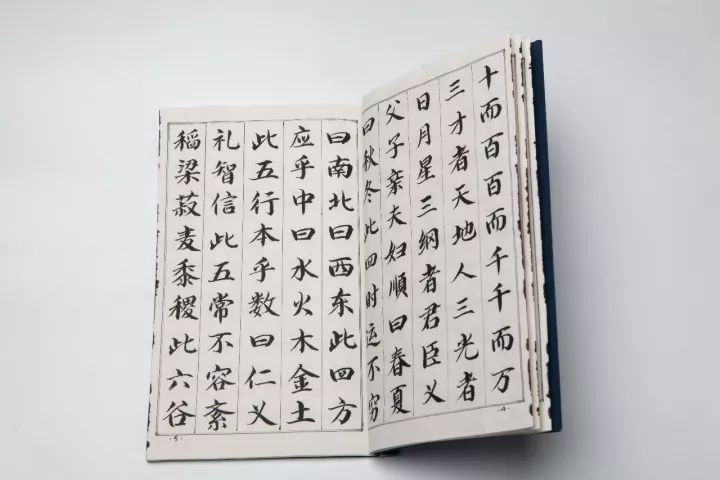 十而百百而千千而万
三才者天地人三光者
日月星三纲者君臣义
父子亲夫妇順曰春夏
曰秋冬此四时运不穷
·4·
曰南北曰西东此四方
应乎中曰水火木金土
此五行本乎数曰仁义
礼智信此五常不容紊
稻粱菽麦黍稷此六谷
·5·